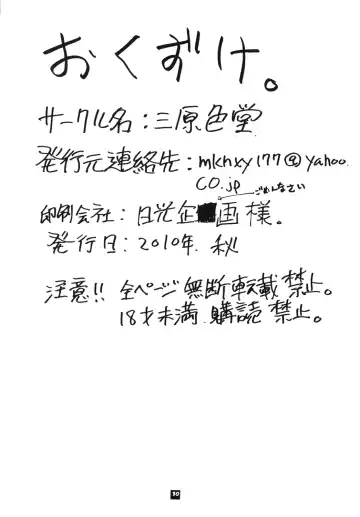 おくずけ。
サークル名:三原色堂
発行元連絡先:mknxy177@yahoo.
co.jp
ごめんなさい
印刷会社:日光企画様。
発行日:2010年.秋
注意!!全ページ無断転載禁止。
18才未満.購読禁止。
30